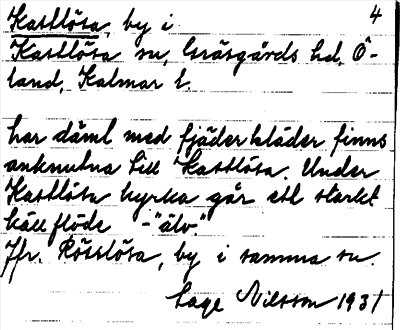 4
Kastlösa, by i
Kastlösa sn, Gräsgårds hd, Ö-
land, Kalmar l.
har däml med fjäderkläder finns
anknutna till Kastlösa. Under
Kastlösa kyrka går ett starkt
källflöde - "älv."
Jfr. Rösslösa, by i samma sn.
Sage Nilsson 1931